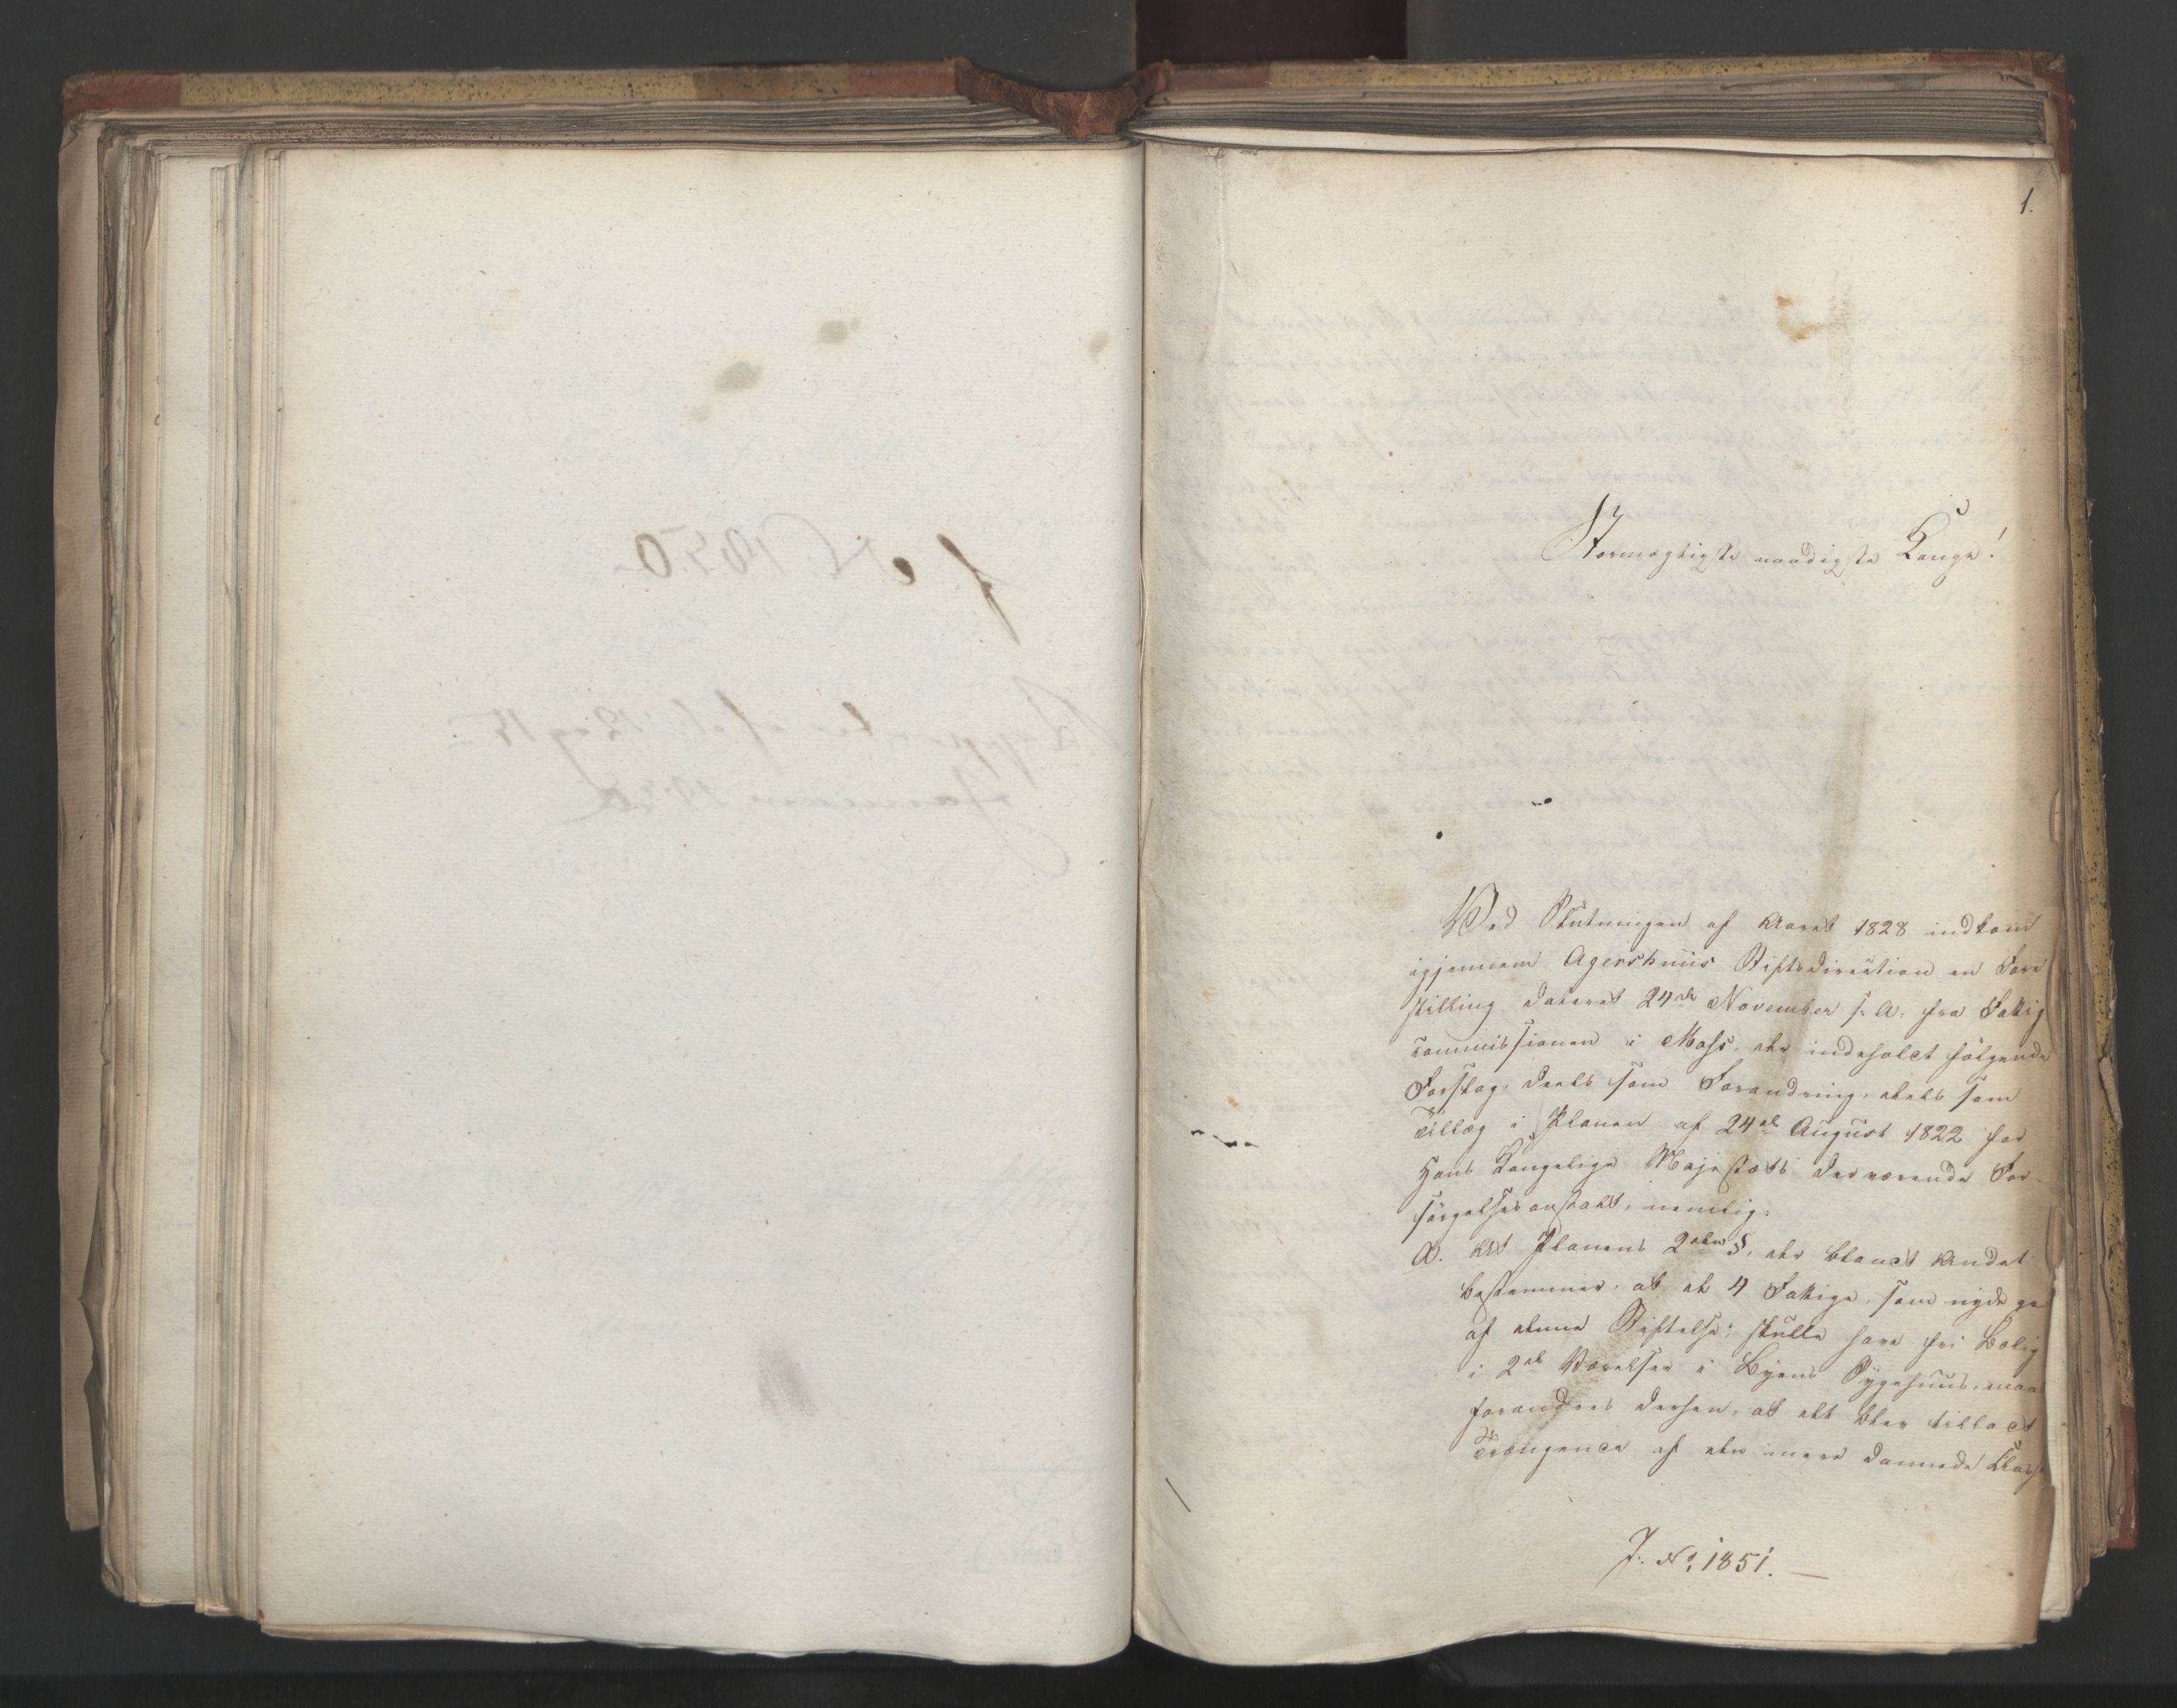 1.
Stormægtigste naadigste Konge!
Ved Slutningen af Aaret 1828 indkom
igjennem Agershuus Stiftsdirection en Fore
stilling dateret 24de November s. A. fra Fattig
commissionen i Moss, der indeholdt følgende
Forslag, deels som Forandring, deels som
Tillæg i Planen af 24de August 1822 for
Hans Kongelige Majestæts derværende For-
sørgelsesanstalt, nemlig:
A. At Planens 2den §, der blandt Andet
bestemmer, at de 4 Fattige, som nyde
af denne Stiftelse, skulle have fri Bolig
i 2de Værelser i Byens Sygehuus, maa
forandres derhen, at det bliver tilladt
Trængende af den mere dannede Klasse
J. No 1851.